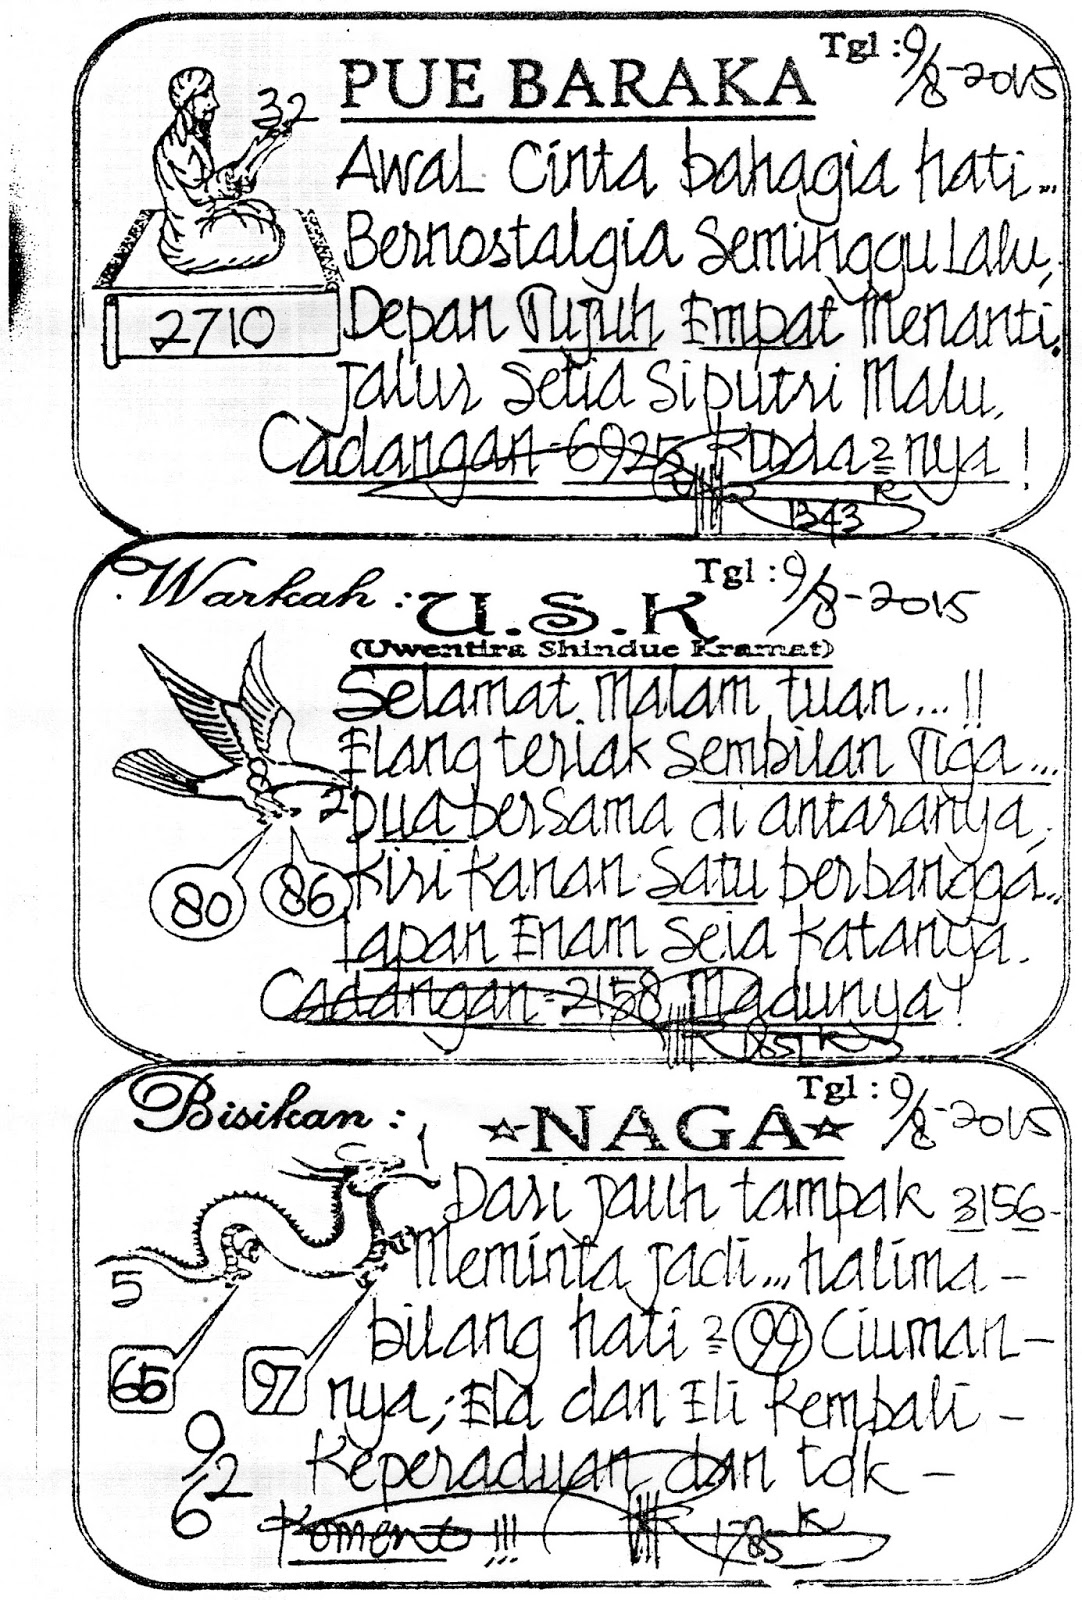 PUE BARAKA
Tgl : 9/8-2015
32
2710
Awal Cinta bahagia hati...
Bernostalgia Seminggu Lalu,
Depan Tujuh Empat Menanti.
Jalur Setia Siputri Malu.
Cadangan = 6925 Kuda2nya !
1343
Warkah : U.S.K
Tgl : 9/8-2015
(Uwentira Shindue Kramat)
Selamat malam tuan...!!
Elang teriak Sembilan Tiga...
2
Dua bersama di antaranya.
80
86
Kiri kanan Satu berbangga..
Lapan Enam Seia Katanya.
Cadangan = 2158 Madunya !
Bisikan : ☆NAGA☆
Tgl : 9/8-2015
1
Dari jauh tampak 3156-
Meminta jadi... halima -
5
bilang hati2 99 Ciuman-
65
97
nya, Ela dan Eli Kembali -
Keperaduan dan tdk -
9/6 2
Koment !!!
1785 K